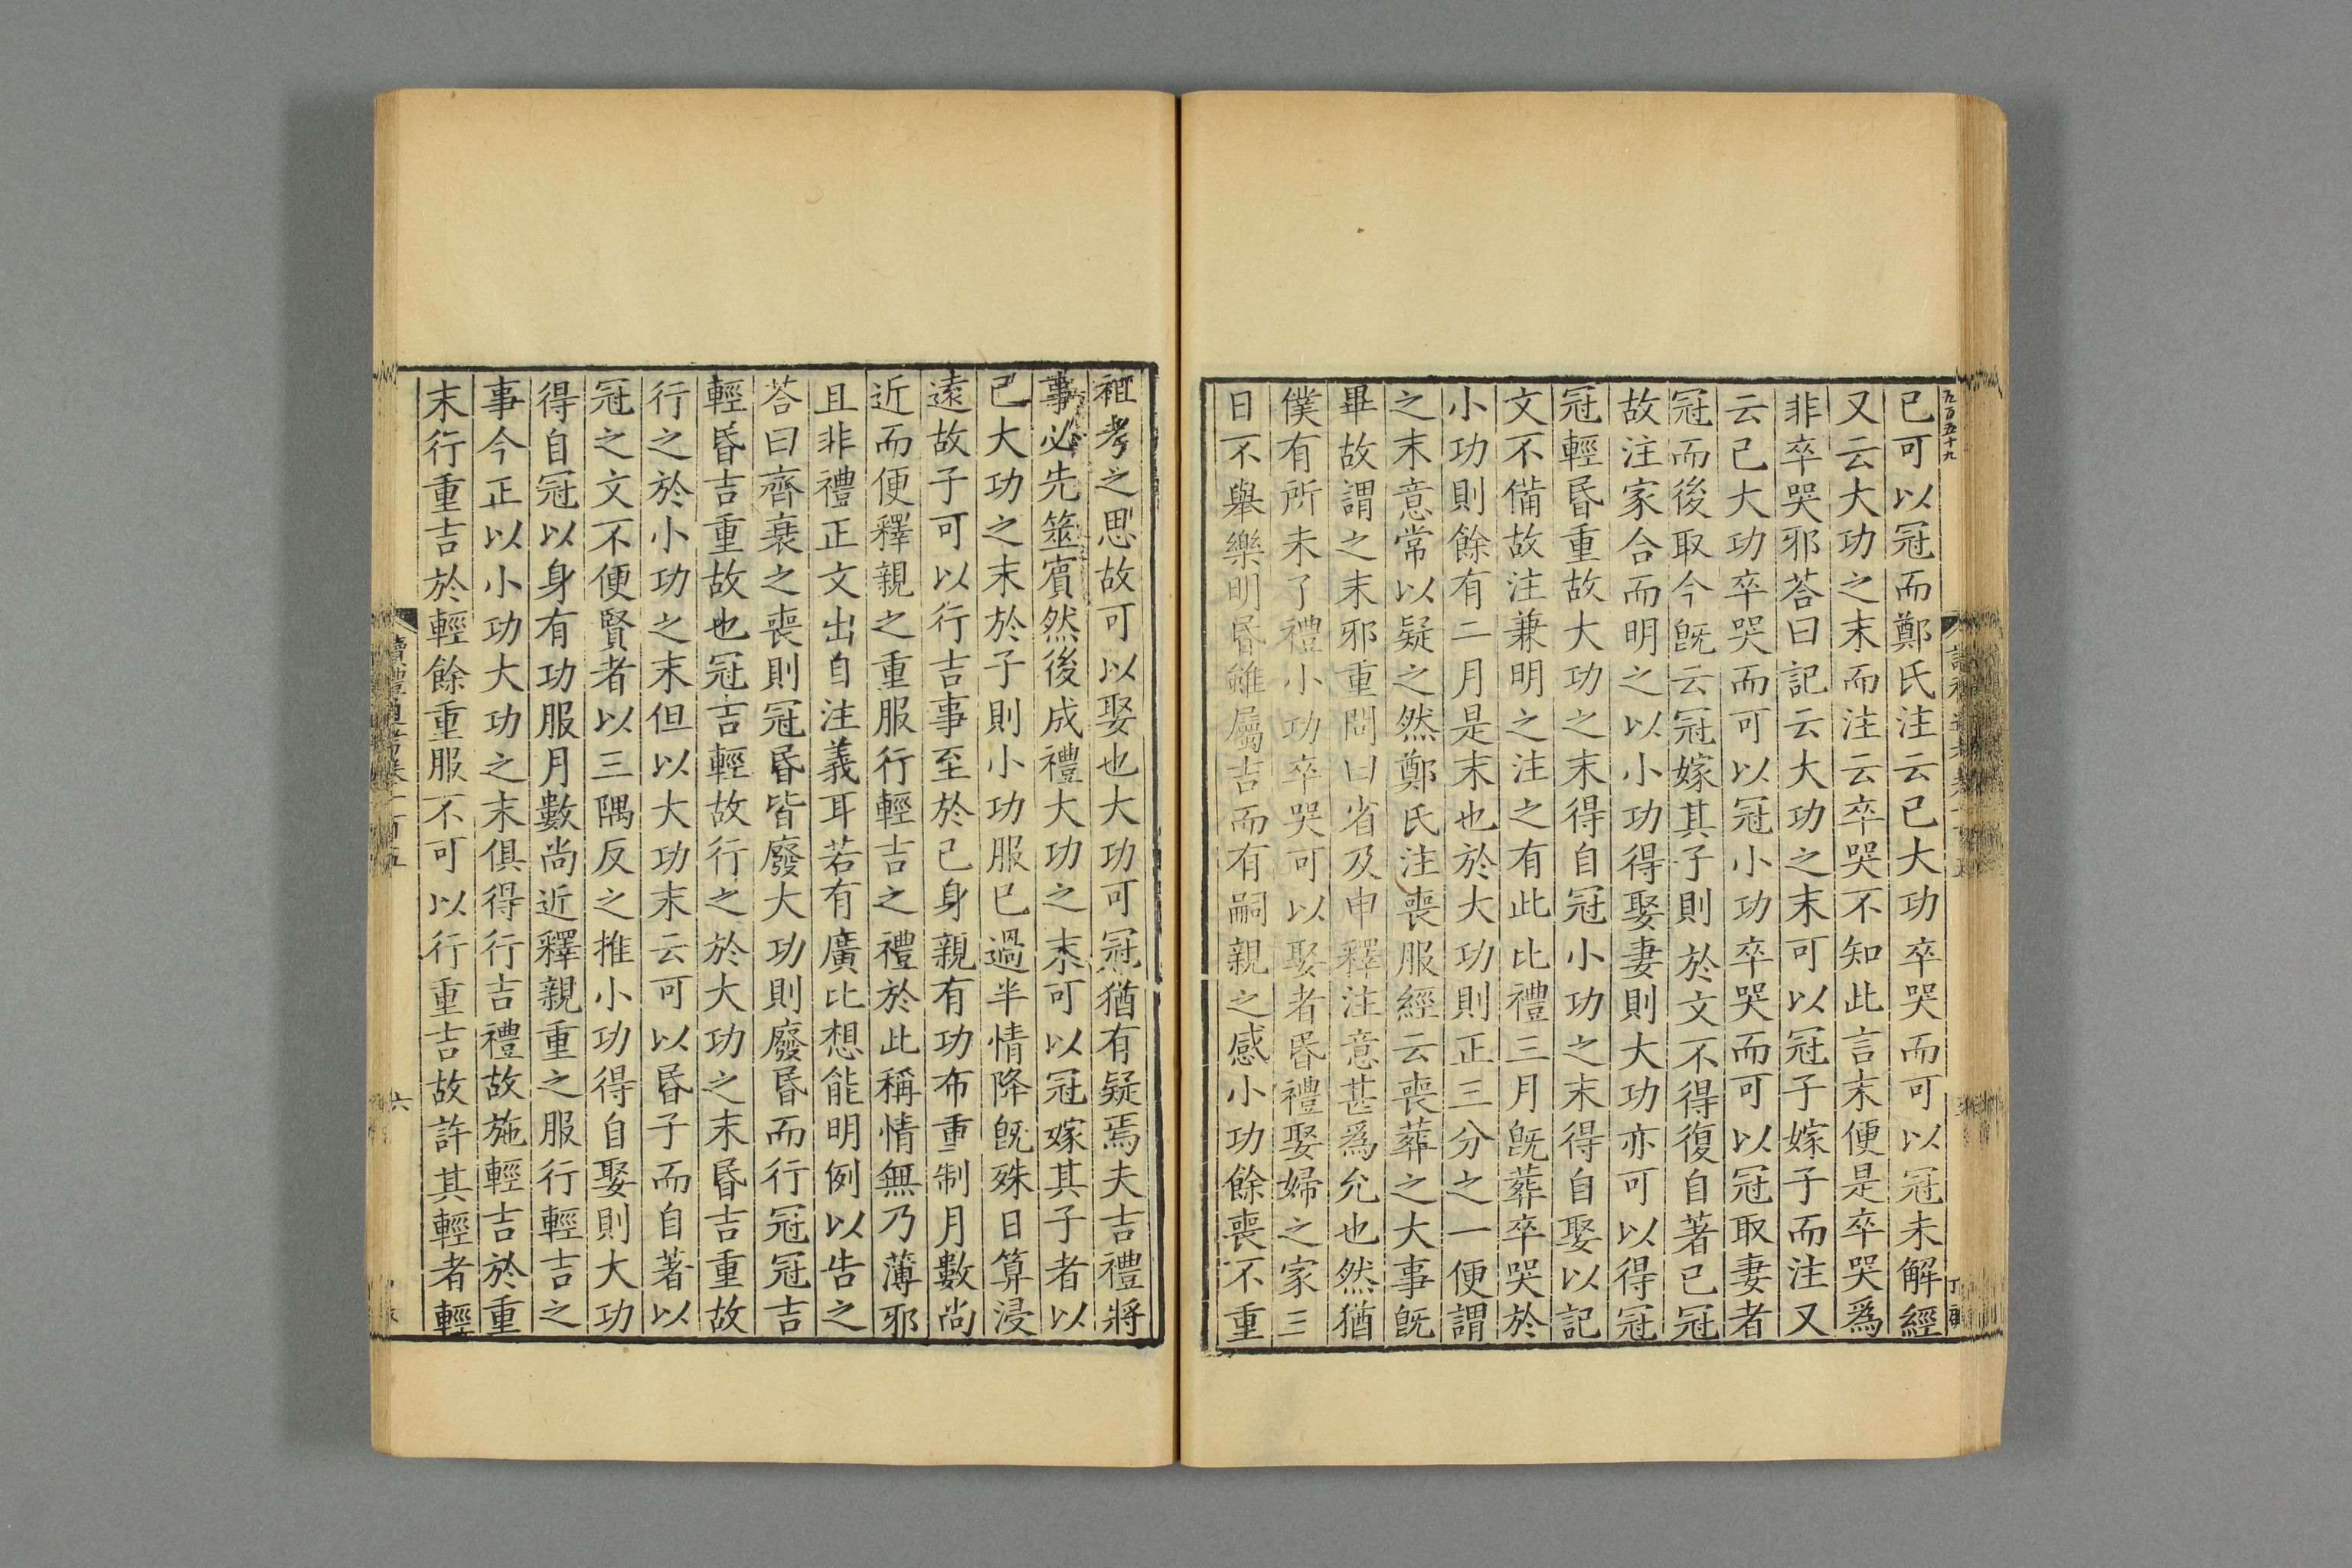 已可以冠而鄭氏注云已大功卒哭而可以冠未解經
又云大功之末而注云卒哭不知此言末便是卒哭爲
非卒哭邪荅曰記云大功之末可以冠子嫁子而注又
云已大功卒哭而可以冠小功卒哭而可以冠取妻者
冠而後取今旣云冠嫁其子則於文不得復自著已冠
故注家合而明之以小功得娶妻則大功亦可以得冠
冠輕昏重故大功之末得自冠小功之末得自娶以記
文不備故注兼明之注之有此比禮三月旣葬卒哭於
小功則餘有二月是末也於大功則正三分之一便謂
之末意常以疑之然鄭氏注喪服經云喪葬之大事旣
畢故謂之末邪重問曰省及申釋注意甚爲允也然猶
僕有所未了禮小功卒哭可以娶者昏禮娶婦之家三
日不舉樂明昏雖屬吉而有嗣親之感小功餘喪不重
祖考之思故可以娶也大功可冠猶有疑焉夫吉禮將
事必先筮賓然後成禮大功之末可以冠嫁其子者以
已大功之末於子則小功服已過半情降旣殊日算浸
遠故子可以行吉事至於己身親有功布重制月數尚
近而便釋親之重服行輕吉之禮於此稱情無乃薄邪
且非禮正文出自注義耳若有廣比想能明例以告之
荅曰齊衰之喪則冠昏皆廢大功則廢昏而行冠冠吉
輕昏吉重故也冠吉輕故行之於大功之末昏吉重故
行之於小功之末但以大功末云可以昏子而自著以
冠之文不便賢者以三隅反之推小功得自娶則大功
得自冠以身有功服月數尚近釋親重之服行輕吉之
事今正以小功大功之末俱得行吉禮故施輕吉於重
末行重吉於輕餘重服不可以行重吉故許其輕者輕
六